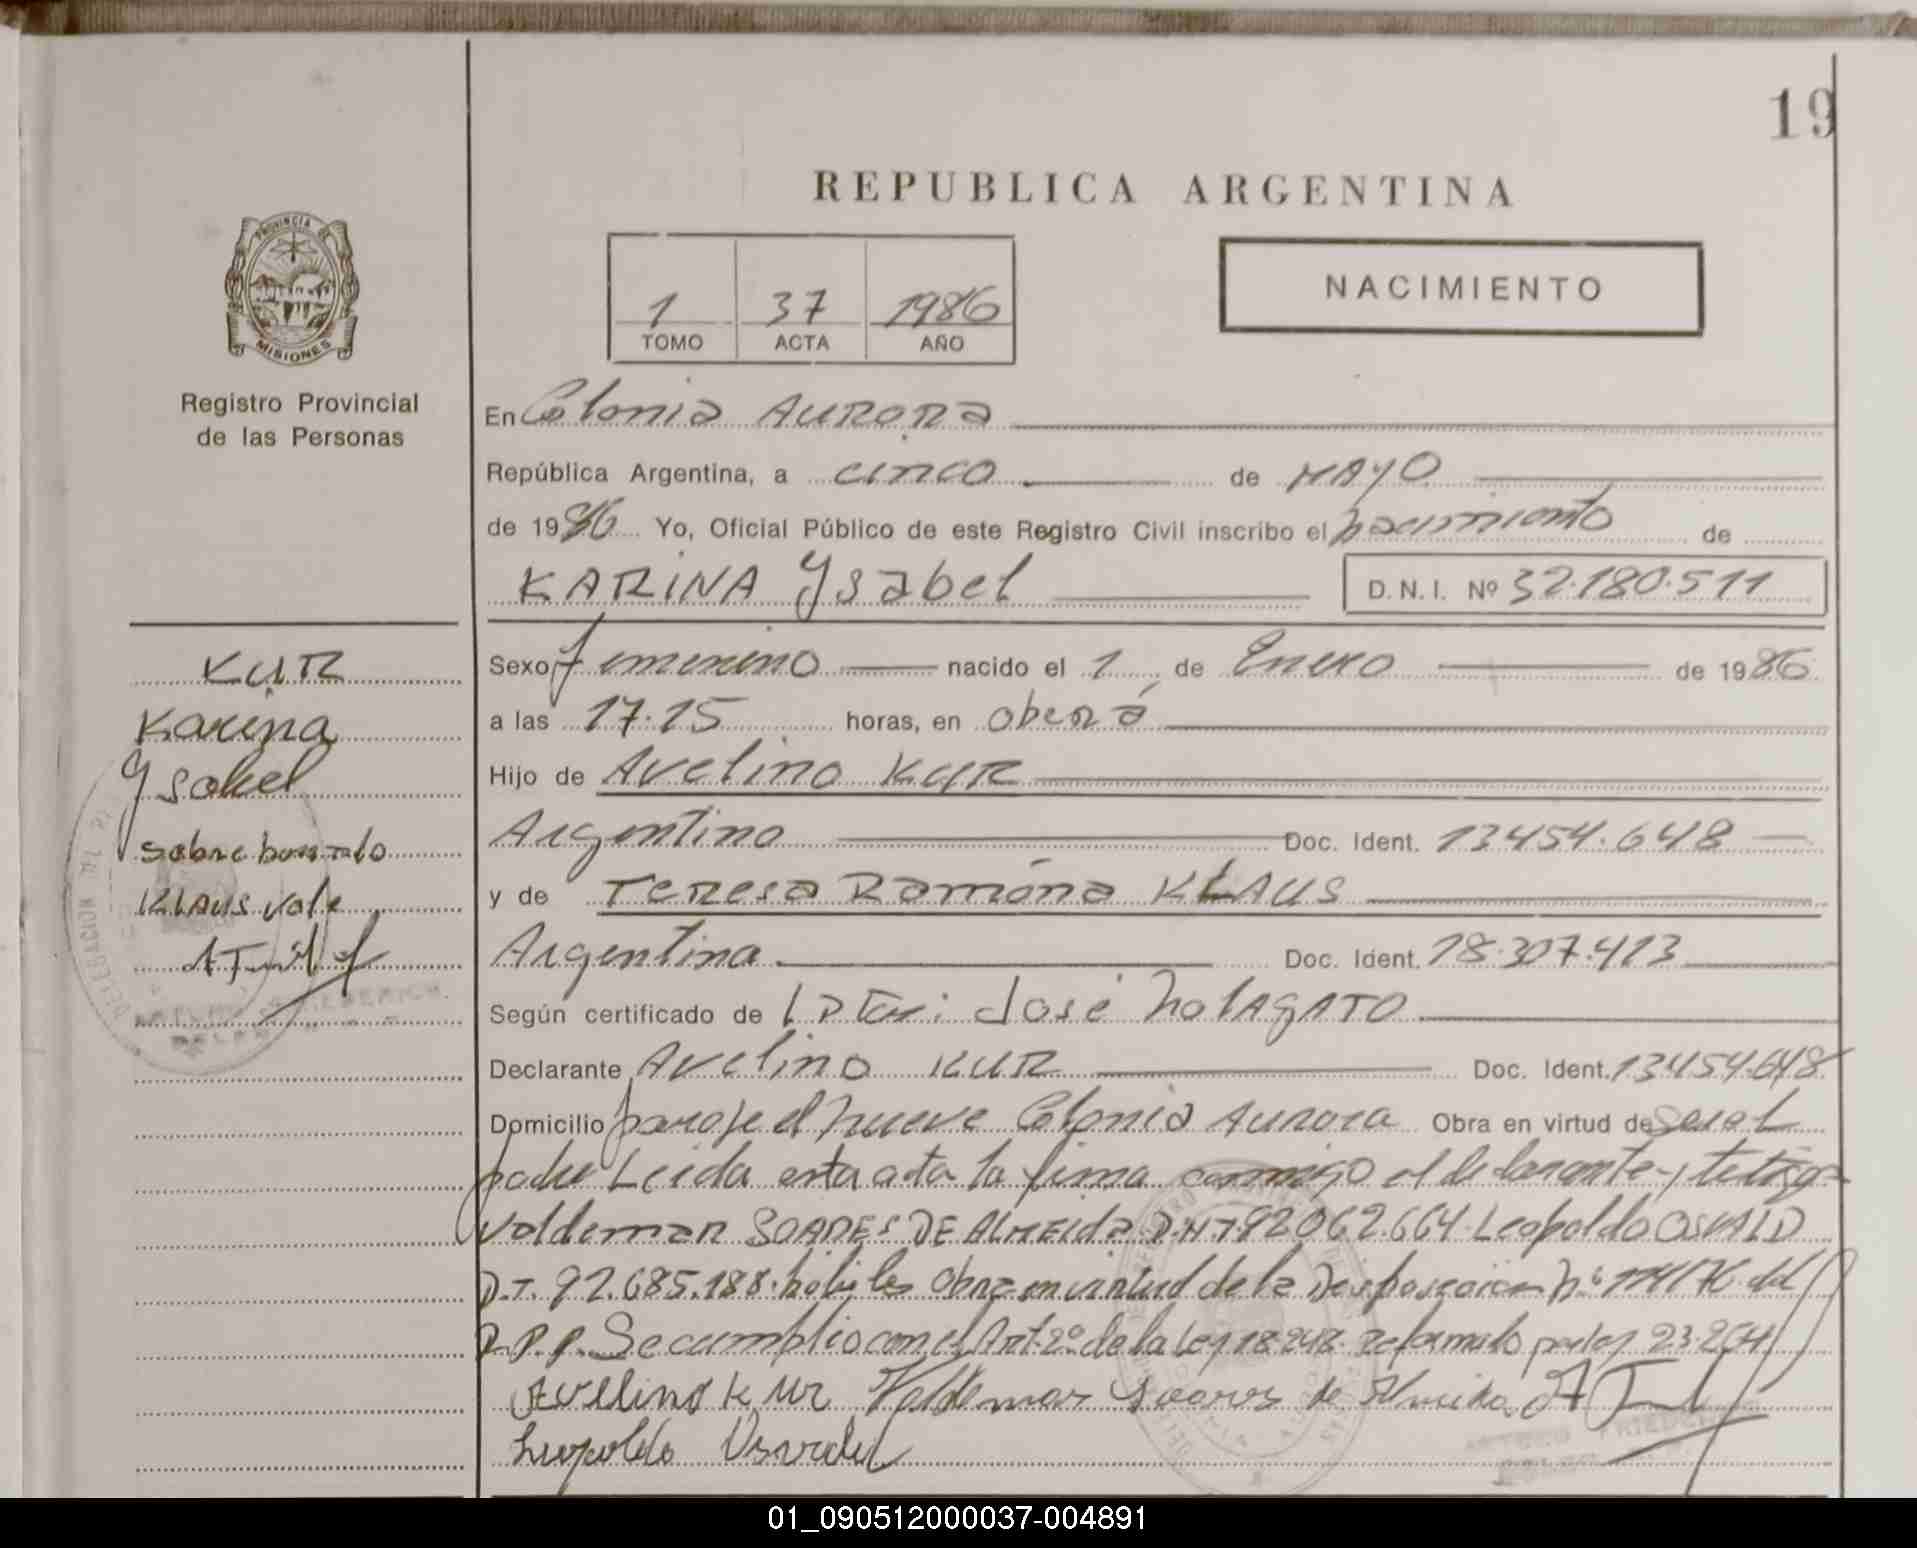 19
REPUBLICA ARGENTINA
PROVINCIA DE
MISIONES
Registro Provincial
de las Personas
1 37 1986
TOMO ACTA AÑO
NACIMIENTO
En Colonia Aurora
República Argentina, a cinco de MAYO
de 1986 Yo, Oficial Público de este Registro Civil inscribo el nacimiento de
KARINA Ysabel D.N.I. Nº 32.180.511
KUR
Karina
Ysabel
sobre borrado
KLAUS vale
Sexo femenino nacido el 1 de Enero de 1986
a las 17.15 horas, en oberá
Hijo de Avelino KUR
Argentino Doc. Ident. 13454.648
y de Teresa Ramóna KLAUS
Argentina Doc. Ident. 18.307.413
Según certificado de José
Declarante Avelino KUR Doc. Ident. 13454.648
Domicilio paraje el nueve Colonia Aurora Obra en virtud de ser el
padre Leida esta acta la firma conmigo el declarante y testigos
Valdemar SOARES DE ALMEIDA 92062.664 Leopoldo OSVALD
D.T. 92.685.188 habiles Obra en virtud de la del
R.P.P. Se cumplio con el Art. 2º de la Ley 18.248 reformado por ley 23.264
Avelino Kur Valdemar Soares de Almeida
Leopoldo Osvald
01_090512000037-004891